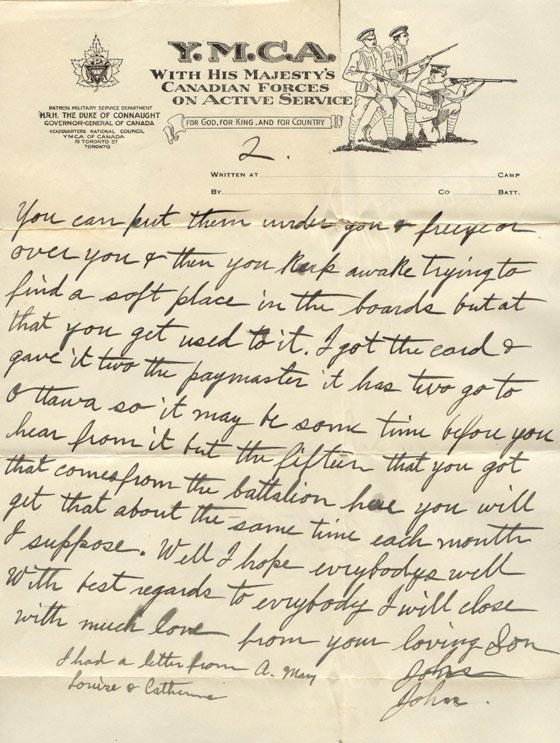 Y.M.C.A.
WITH HIS MAJESTY'S
CANADIAN FORCES
ON ACTIVE SERVICE
FOR GOD, FOR KING, AND FOR COUNTRY
PATRON MILITARY SERVICE DEPARTMENT
H.R.H. THE DUKE OF CONNAUGHT
GOVERNOR-GENERAL OF CANADA
HEADQUARTERS NATIONAL COUNCIL
YMCA OF CANADA
15 TORONTO ST
TORONTO
2.
WRITTEN AT CAMP
BY CO BATT.
You can put them under you & freeze or
over you & then you keep awake trying to
find a soft place in the boards but at
that you get used to it. I got the card &
gave it two the paymaster it has two go to
Ottawa so it may be some time before you
hear from it but the fiftien that you got
that comes from the battalion here you will
get that about the same time each month
I suppose. Well I hope evrybodys well
With best regards to evrybody I will close
with much love from your loving Son
John
John.
I had a letter from A. Mary
Louise & Catherine